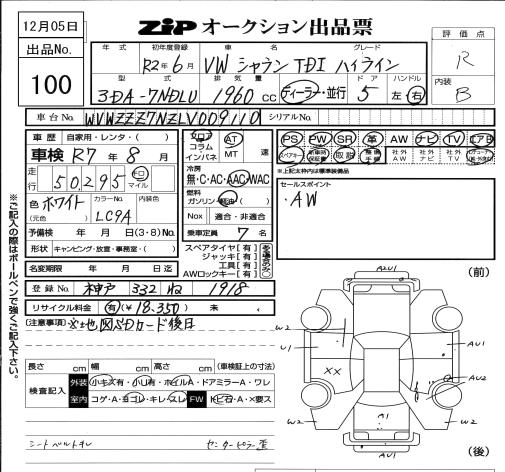 12月05日
ZIP オークション出品票
評価点
R
出品No.
100
年式 初年度登録 車名 グレード
R2年6月 VW シャラン TDI ハイライン
内装
B
型式 排気量 ドア ハンドル
3DA-7NDLU 1960cc ディーラー・並行 5 左・右
車台No. WVWZZZ7NZLV009110 シリアルNo.
車歴 自家用・レンタ・( )
車検 R7年8月
走行 50,295 キロ マイル
色 ホワイト (元色) カラーNo. LC9A 内装色
予備検 年 月 日(3・8)No.
形状 キャンピング・放室・事務室・( )
名変期限 年 月 日迄
フロア コラム インパネ AT MT 速
冷房 無・C・AC・AAC・WAC
燃料 ガソリン・軽油・( )
Nox 適合・非適合
乗車定員 7名
スペアタイヤ[有]
ジャッキ[有]
工具[有]
AWロックキー[有]
PS PW SR 革 AW ナビ TV エアB
スペアキー 取説 社外AW 社外ナビ 社外TV
*上記太枠内は標準装備品
セールスポイント
・AW
登録No. 神戸 332 ほ 1918
リサイクル料金 有(¥18,350) 未
(注意事項) ※地図SDカード後日
長さ cm 幅 cm 高さ cm (車検証上の寸法)
検査記入 外装 小キズ有・小凹有・ホイルA・ドアミラーA・ワレ
室内 コゲ・A・ヨゴレ・キレ・スレ FW トビ石・A・×要ス
シートベルトスレ センターピラー歪
※ご記入の際はボールペンで強くご記入下さい。
(前)
A2U1
W2
U1
XX
AU1
AU2
A1
W2
(後)